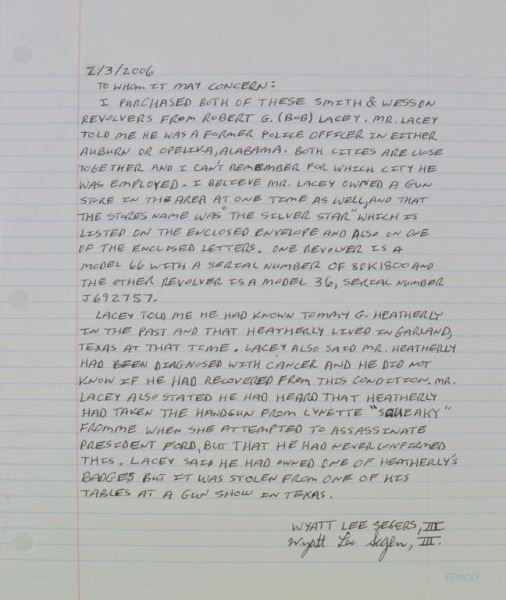 2/3/2006
TO WHOM IT MAY CONCERN:
I PURCHASED BOTH OF THESE SMITH & WESSON
REVOLVERS FROM ROBERT G. (BOB) LACEY. MR. LACEY
TOLD ME HE WAS A FORMER POLICE OFFICER IN EITHER
AUBURN OR OPELIKA, ALABAMA. BOTH CITIES ARE CLOSE
TOGETHER AND I CAN'T REMEMBER FOR WHICH CITY HE
WAS EMPLOYED. I BELIEVE MR. LACEY OWNED A GUN
STORE IN THE AREA AT ONE TIME AS WELL, AND THAT
THE STORES NAME WAS "THE SILVER STAR" WHICH IS
LISTED ON THE ENCLOSED ENVELOPE AND ALSO ON ONE
OF THE ENCLOSED LETTERS. ONE REVOLVER IS A
MODEL 66 WITH A SERIAL NUMBER OF 80K1800 AND
THE OTHER REVOLVER IS A MODEL 36, SERIAL NUMBER
J692757.
LACEY TOLD ME HE HAD KNOWN TOMMY G. HEATHERLY
IN THE PAST AND THAT HEATHERLY LIVED IN GARLAND,
TEXAS AT THAT TIME. LACEY ALSO SAID MR. HEATHERLY
HAD BEEN DIAGNOSED WITH CANCER AND HE DID NOT
KNOW IF HE HAD RECOVERED FROM THIS CONDITION. MR.
LACEY ALSO STATED HE HAD HEARD THAT HEATHERLY
HAD TAKEN THE HANDGUN FROM LYNETTE "SQUEAKY"
FROMME WHEN SHE ATTEMPTED TO ASSASSINATE
PRESIDENT FORD, BUT THAT HE HAD NEVER CONFIRMED
THIS. LACEY SAID HE HAD OWNED ONE OF HEATHERLY'S
BADGES BUT IT WAS STOLEN FROM ONE OF HIS
TABLES AT A GUN SHOW IN TEXAS.
WYATT LEE SEGERS, III.
Wyatt Lee Segers, III.
Mead